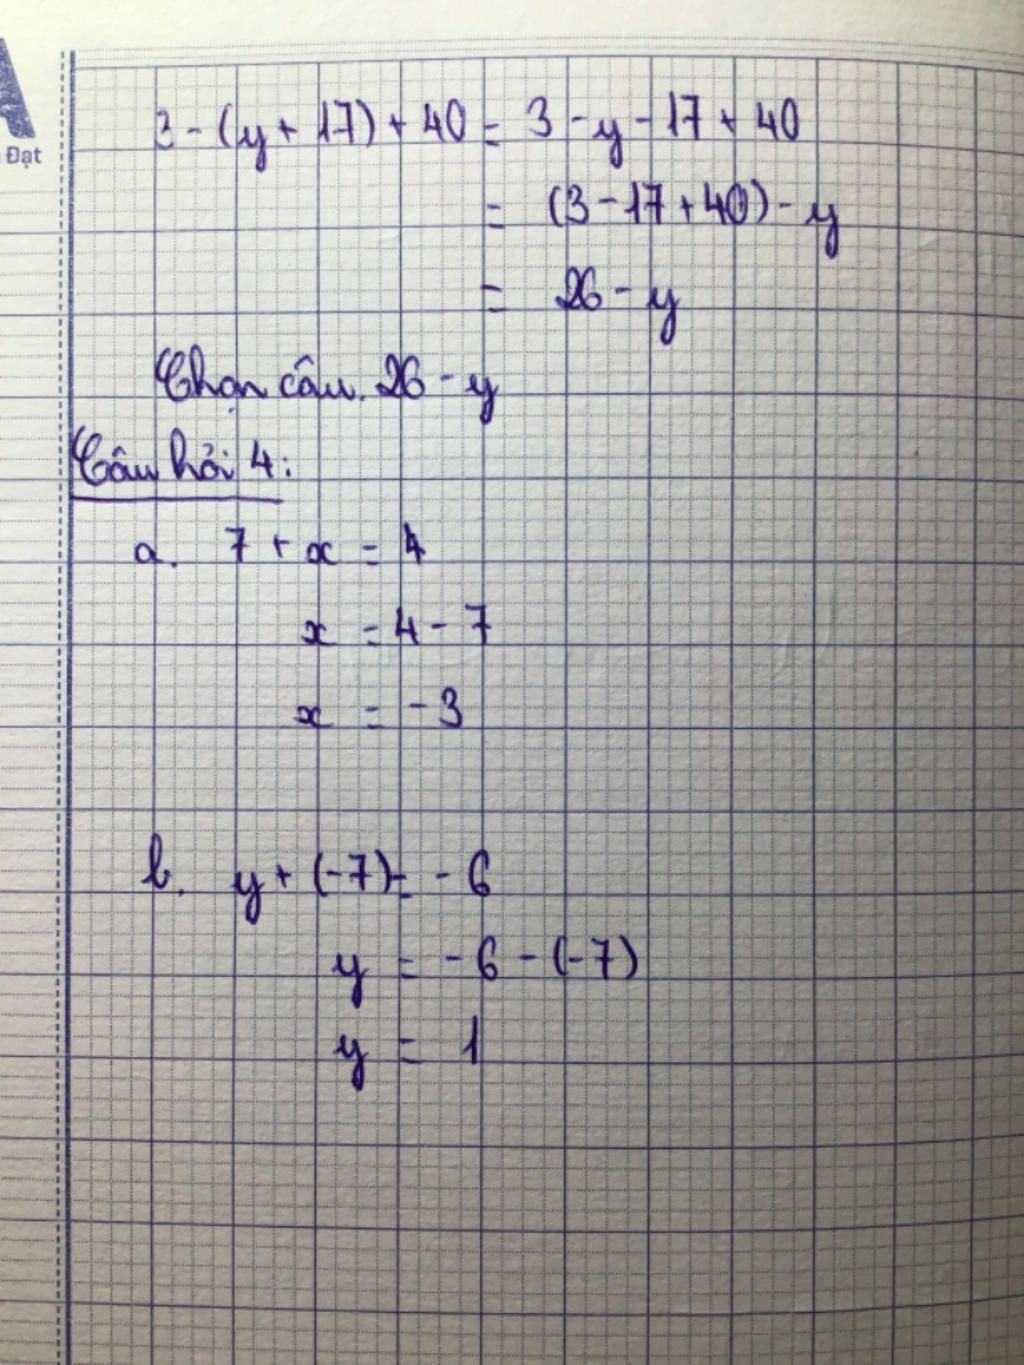 A
Đạt
3 - (y + 17) + 40 = 3 - y - 17 + 40
= (3 - 17 + 40) - y
= 26 - y
Chọn câu. 26 - y
Câu hỏi 4:
a. 7 + x = 4
x = 4 - 7
x = -3
b. y + (-7) = -6
y = -6 - (-7)
y = 1